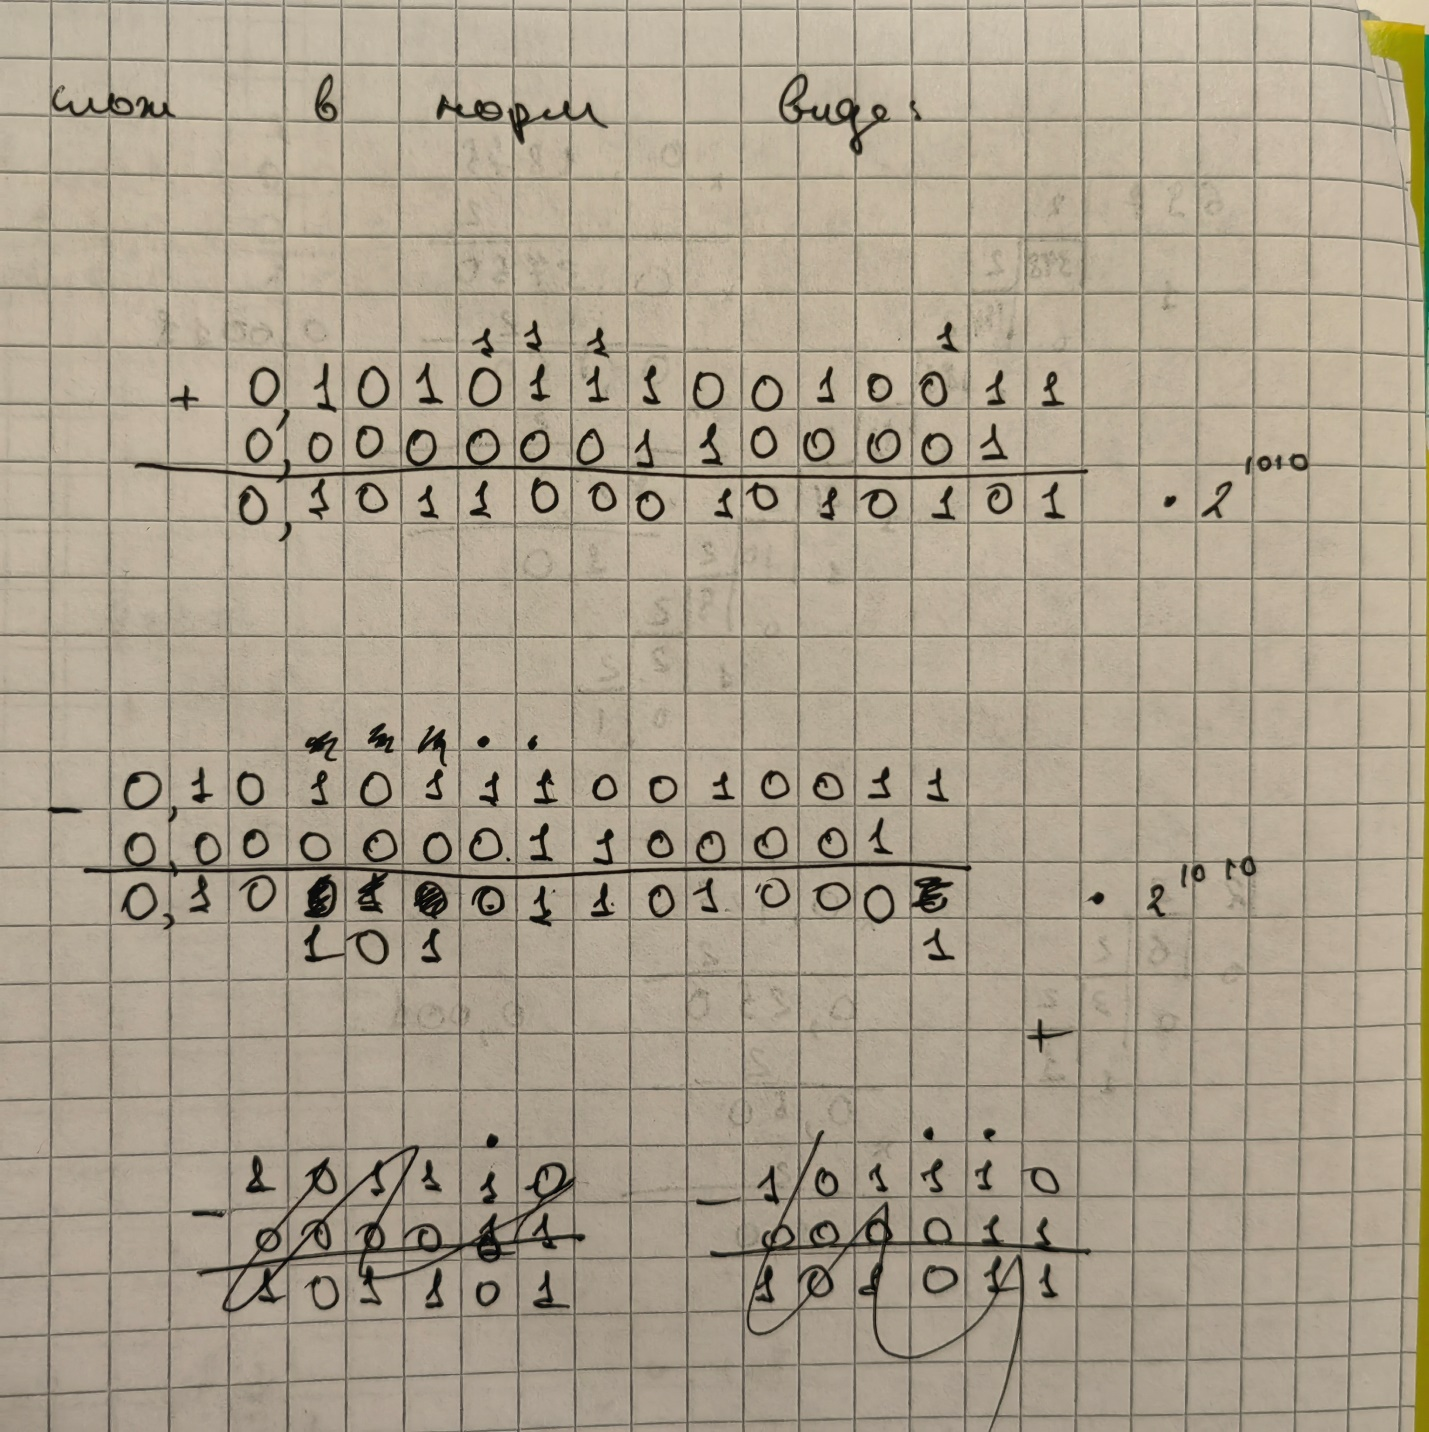 слож в норм виде:
1 1 1 1
+ 0,10101111001001 1
0,0000001100001
0,10110001010101 · 2^1010
- 0,10101111001001 1
0,0000001100001
0,10 0110100 0 · 2^10 10
1 0 1 1
+
- 101110 - 101110
000011 000011
101101 101011